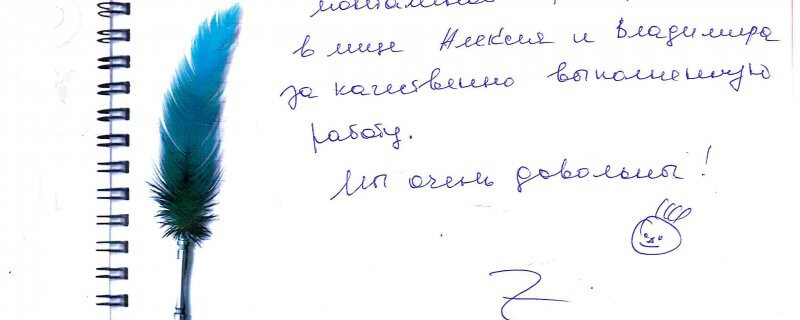 в лице Алексея и Владимира
за качественно выполненную
работу.
Мы очень довольны!